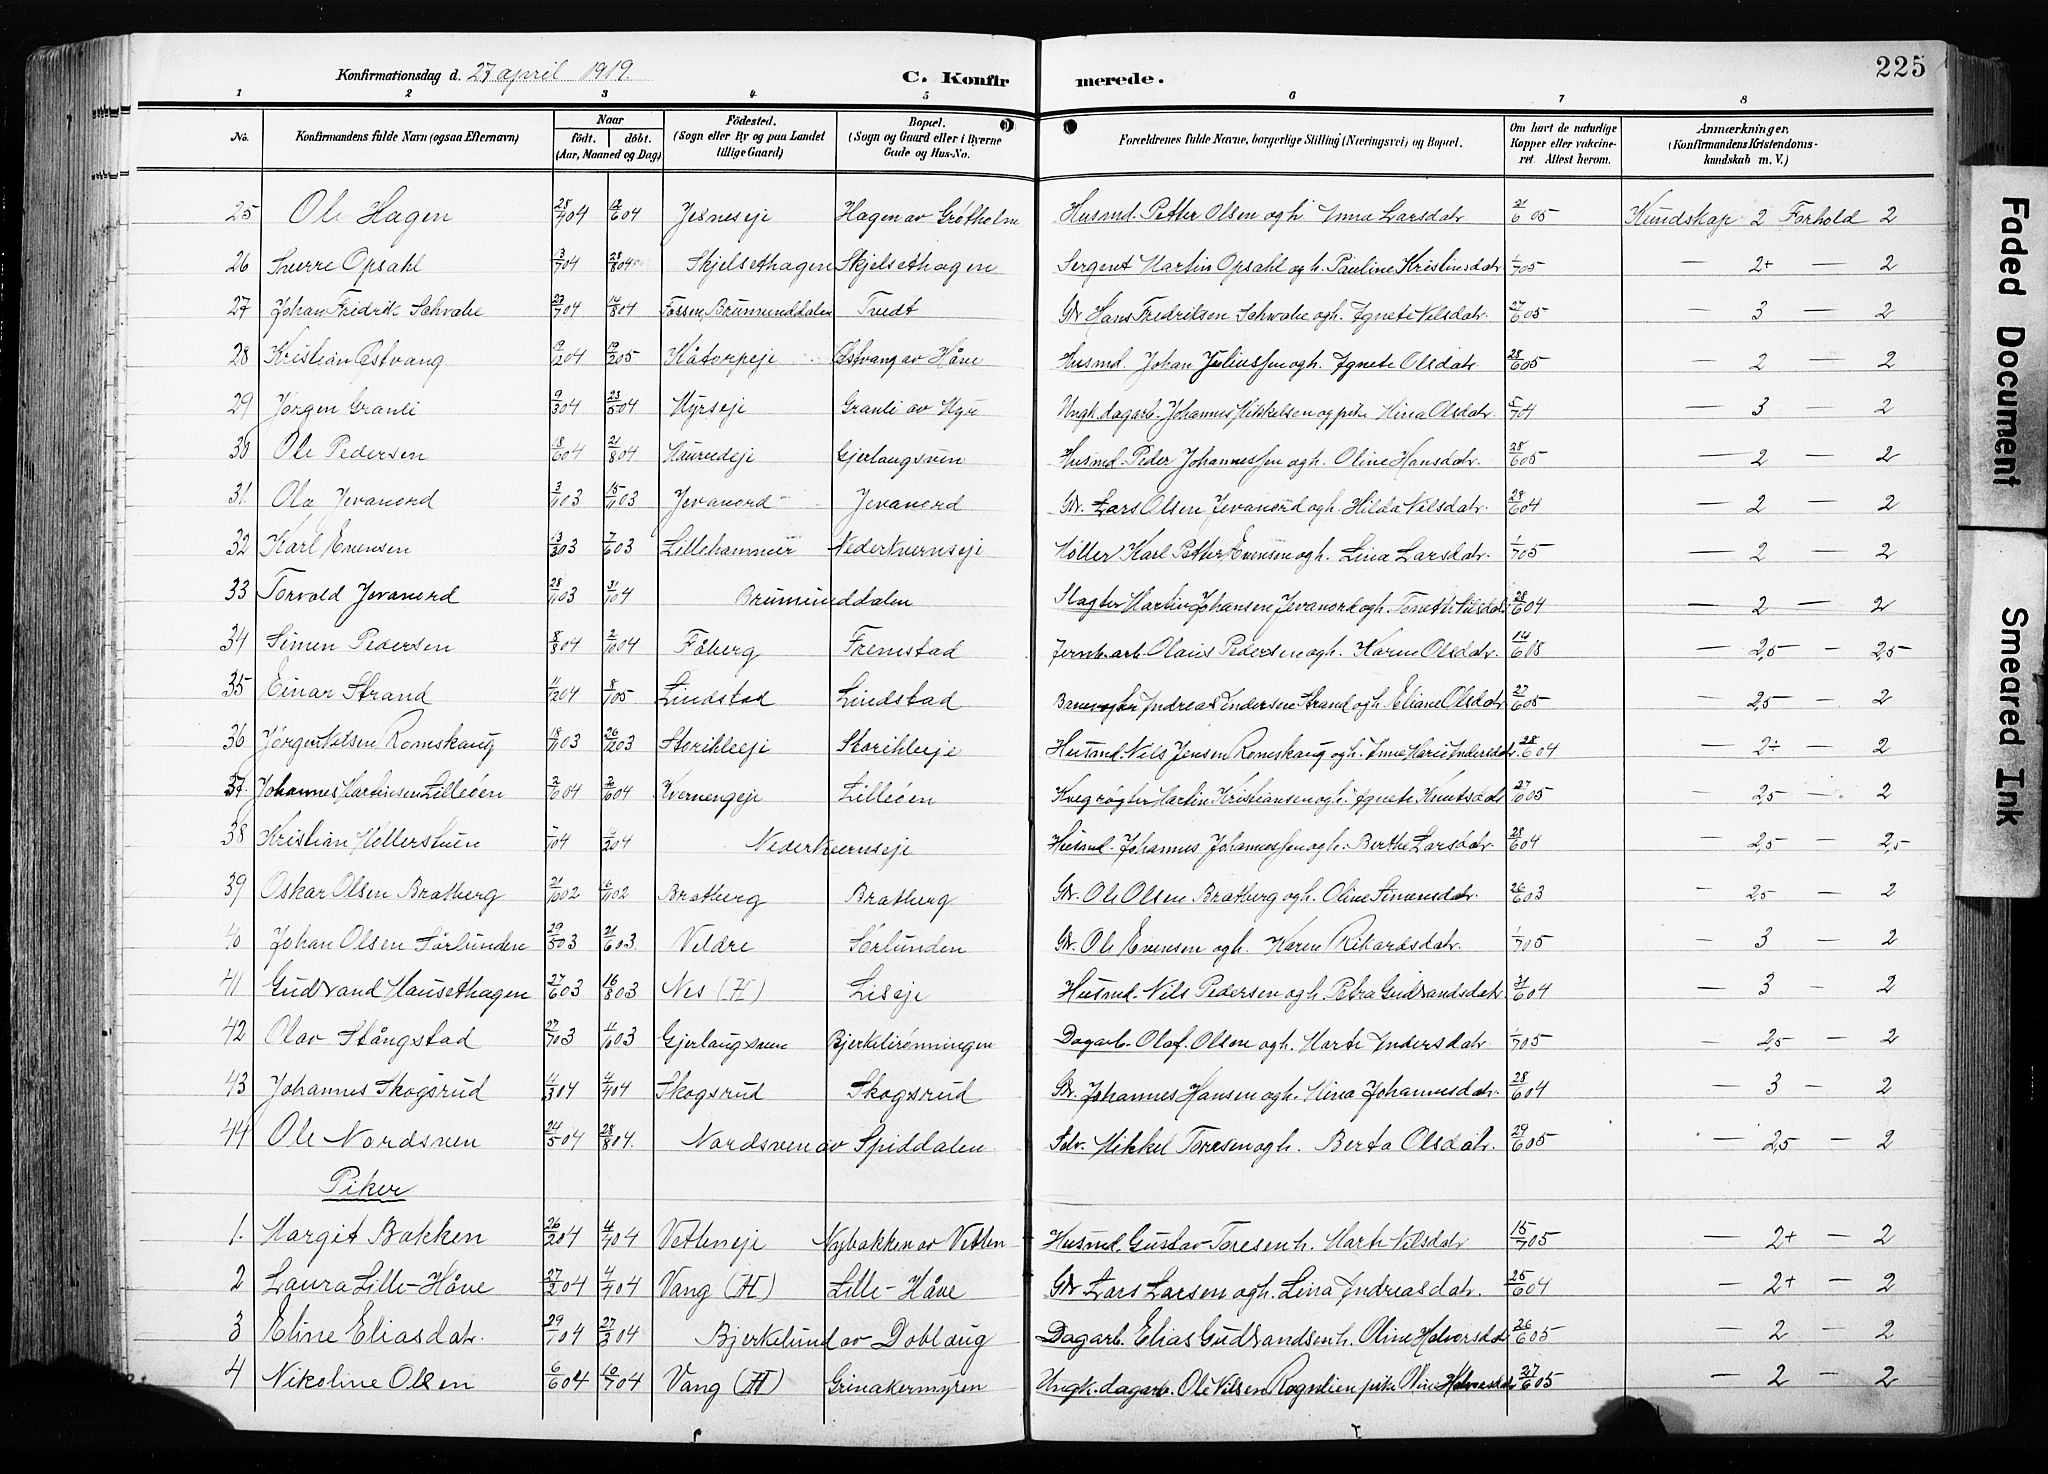 225
Konfirmationsdag d. 27 april 1919. C. Konfirmerede.
1 2 3 4 5 6 7 8
No. Konfirmandens fulde Navn (ogsaa Efternavn) Naar født. døbt. (Aar, Maaned og Dag) Fødested. (Sogn eller By og paa Landet tillige Gaard) Bopæl. (Sogn og Gaard eller i Byerne Gade og Hus-No. Forældrenes fulde Navne, borgerlige Stilling (Næringsvei) og Bopæl. Om havt de naturlige Kopper eller vakcineret. Attest herom. Anmærkninger. (Konfirmandens Kristendomskundskab m. V.)
25 Ole Hagen 28/4 04 12/6 04 Jesneseje Hagen av Grøtholm Husmd. Petter Olsen og h. Anna Larsdatr 21/6 05 Kundskap 2 Forhold 2
26 Sverre Opsahl 3/7 04 28/8 04 Skjelsethagen Skjelsethagen Sergent Martin Opsahl og h. Pauline Kristinsdatr 1/7 05 — 2+ — 2
27 Johan Fredrik Schvabe 27/7 04 14/8 04 Fossen Brumunddalen Tvedt Gbr Hans Fredriksen Schvabe og h. Agnete Nilsdatr. 27/6 05 — 3 — 2
28 Kristian Østvang 19/12 04 19/2 05 Kåtorpeje Østvang av Håve Husmd. Johan Juliussen og h. Agnete Olsdatr. 28/6 05 — 2 — 2
29 Jørgen Granli 9/3 04 23/5 04 Myrseje Granli av Myr Ungk. dagarb. Johannes Mikkelsen og pike Mina Olsdatr. 5/7 04 — 3 — 2
30 Ole Pedersen 18/6 04 21/8 04 Maurudeje Gjerlaugsven Husmd. Peder Johannessen og h. Oline Hansdatr. 28/6 05 — 2 — 2
31. Ola Jevanord 3/11 03 15/11 03 Jevanord Jevanord Gbr. Lars Olsen Jevanord og h. Hilda Nilsdatr. 28/6 04 — 2 — 2
32 Karl Evensen 13/3 03 7/6 03 Lillehammer Nederkvernseje Møller Karl Petter Evensen og h. Lina Larsdatr. 1/7 05 — 2 — 2
33 Torvald Jevanord 28/11 03 31/1 04 Brumunddalen Slagter Martin Johansen Jevanord og h. Tonette Nilsdatr 28/6 04 — 2 — 2
34 Simen Pedersen 8/8 04 2/10 04 Fåberg Fremstad Jernb. arb. Olaus Pedersen og h. Karen Olsdatr. 14/6 18 — 2,5 — 2,5
35 Einar Strand 11/12 04 8/1 05 Lindstad Lindstad Banevogter Andreas Andersen Strand og h. Eliane Olsdatr 27/6 05 — 2,5 — 2
36 Jørgen Nilsen Romskaug 18/11 03 26/12 03 Storihleeje Storihleeje Husmd. Nils Jensen Romskaug og h. Anne Marie Andersdatr. 28/6 04 — 2÷ — 2
37. Johannes Martinsen Lilleöen 2/6 04 26/6 04 Kvernengeje Lilleöen Kvegrøgter Martin Kristiansen og h. Agnete Knutsdatr 27/6 05 — 2,5 — 2
38 Kristian Møllerstuen /1 04 /2 04 Nederkvernseje Husmd. Johannes Johannessen og h. Berthe Larsdatr. 28/6 04 — 2,5 — 2,5
39 Oskar Olsen Bratberg 21/10 02 16/11 02 Bratberg Bratberg Gbr. Ole Olsen Bratberg og h. Oline Simensdatr. 26/6 03 — 2,5 — 2
40 Johan Olsen Sørlunden 29/5 03 21/6 03. Veldre Sørlunden Gbr. Ole Evensen og h. Karen Rikardsdatr. 1/7 05 — 3 — 2
41 Gudbrand Mausethagen 27/6 03 16/8 03 Nes (H) Liseje Husmd. Nils Pedersen og h. Petra Gudbrandsdatr 31/6 04 — 3 — 2
42 Olav Stångstad 27/7 03 4/10 03 Gjerlaugsven Bjerkelirønningen Dagarb. Olaf. Olsen og h. Marte Andersdatr. 1/7 05 — 2,5 — 2
43 Johannes Skogsrud 4/3 04 4/4 04 Skogsrud Skogsrud Gbr. Johannes Hansen og h. Mina Johannesdatr. 28/6 04 — 3 — 2
44 Ole Nordsven 24/5 04 28/8 04. Nordsven av Spiddalen Selv. Mikkel Toresen og h. Berta Olsdatr. 29/6 05 — 2,5 — 2
Piker
1. Margit Bakken 26/2 04 4/4 04 Vetteneje Nybakken av Vetten Husmd. Gustav Toresen h. Marte Nilsdatr 15/7 05 — 2+ — 2
2 Laura Lille-Håve 27/2 04 4/4 04 Vang (H) Lille-Håve Gbr Lars Larsen og h. Lina Andreasdatr. 25/6 04 — 2+ — 2
3 Eline Eliasdatr. 29/1 04 27/3 04 Bjerkelund av Doblaug Dagarb. Elias Gudbrandsen h. Oline Halvorsdatr 26/6 05 — 2 — 2
4 Nikoline Olsen 6/6 04 10/7 04 Vang (H) Grinakermyren Ungk. dagarb. Ole Nilsen Rognlien pike Oline Halvorsdatr 27/6 05 — 2 — 2
Faded Document
Smeared Ink